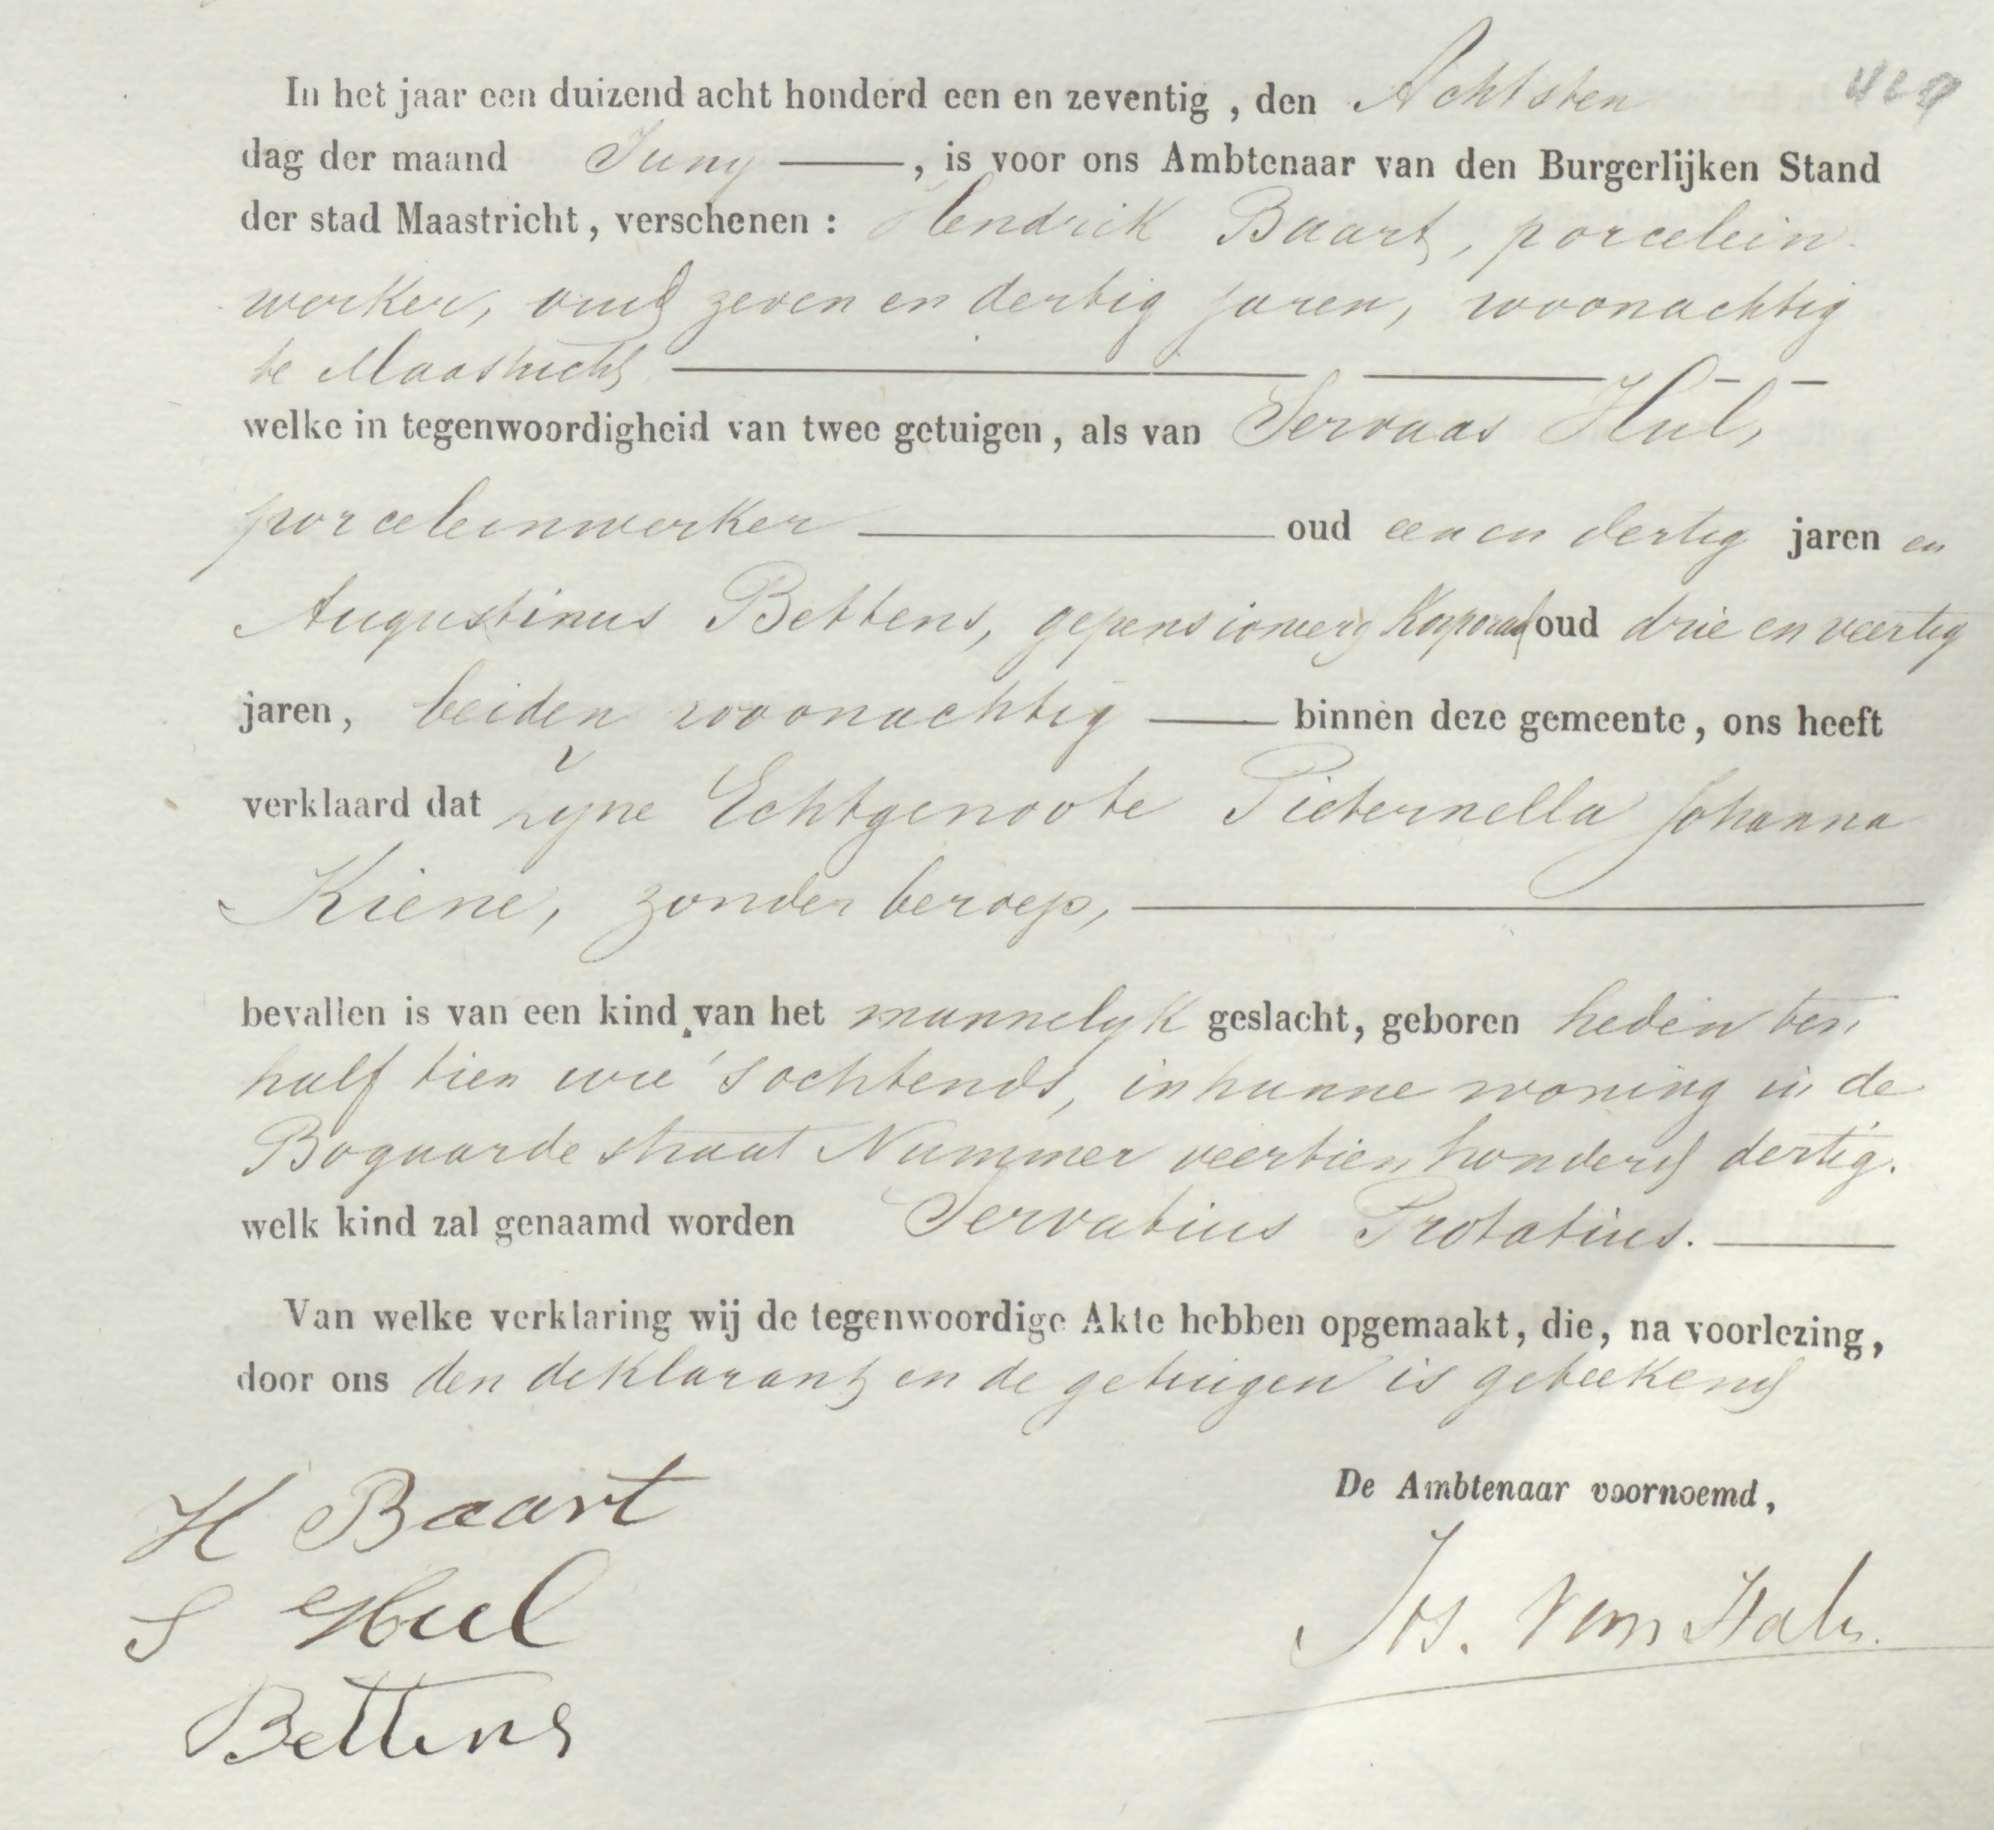 In het jaar een duizend acht honderd een en zeventig, den Achtsten
dag der maand Juny ———, is voor ons Ambtenaar van den Burgerlijken Stand
der stad Maastricht, verschenen: Hendrik Baart, porcelein
werker, oud zeven en dertig jaren, woonachtig
te Maastricht
welke in tegenwoordigheid van twee getuigen, als van Servaas Hul,
porceleinwerker ——— oud een en dertig jaren en
Augustinus Bettens, gepensioneerd Korporaal oud drie en veertig
jaren, beiden woonachtig ——— binnen deze gemeente, ons heeft
verklaard dat zyne Echtgenoote Pieternella Johanna
Kiene, zonder beroep, ———
bevallen is van een kind van het mannelyk geslacht, geboren heden ten
half tien ure 's ochtends, in hunne woning in de
Bogaarde straat Nummer veertien honderd dertig.
welk kind zal genaamd worden Servatius Protatius. ———
Van welke verklaring wij de tegenwoordige Akte hebben opgemaakt, die, na voorlezing,
door ons den deklarant en de getuigen is geteekend
De Ambtenaar voornoemd,
H Baart
S Hul
Bettens
Jos. Van